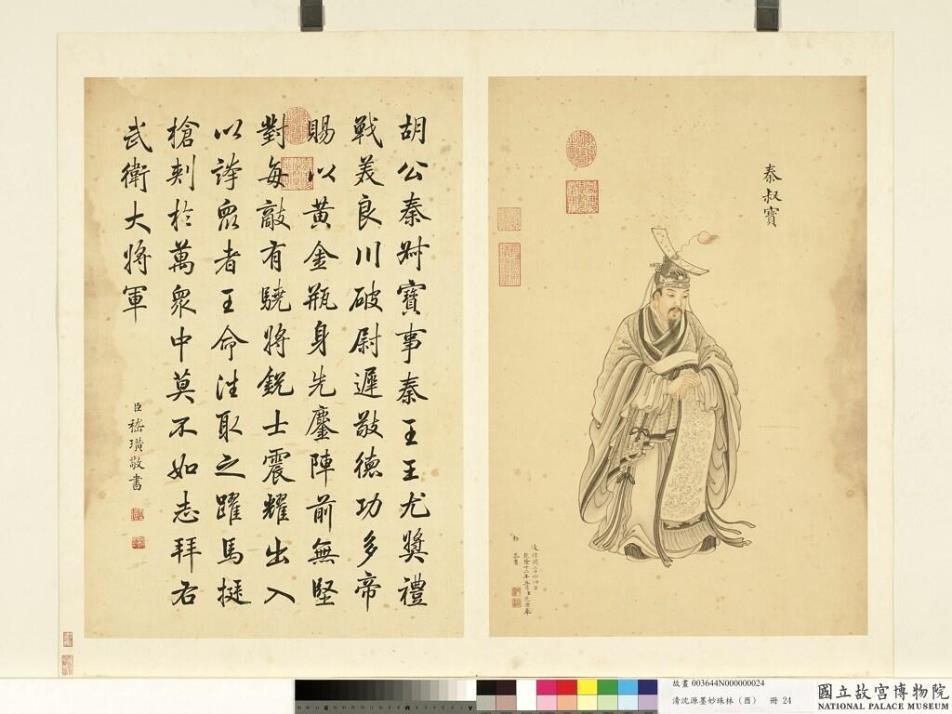 秦叔寶
乾隆十二年五月臣沈源奉
勅
恭畫
胡公秦叔寶事秦王王尤獎禮
戰美良川破尉遲敬德功多帝
賜以黃金瓶身先鏖陣前無堅
對每敵有驍將銳士震耀出入
以誇眾者王命往取之躍馬挺
槍刺於萬眾中莫不如志拜右
武衛大將軍
臣嵇璜敬書
故畫 003644N000000024
清沈源墨妙珠林（酉） 冊 24
國立故宮博物院
NATIONAL PALACE MUSEUM